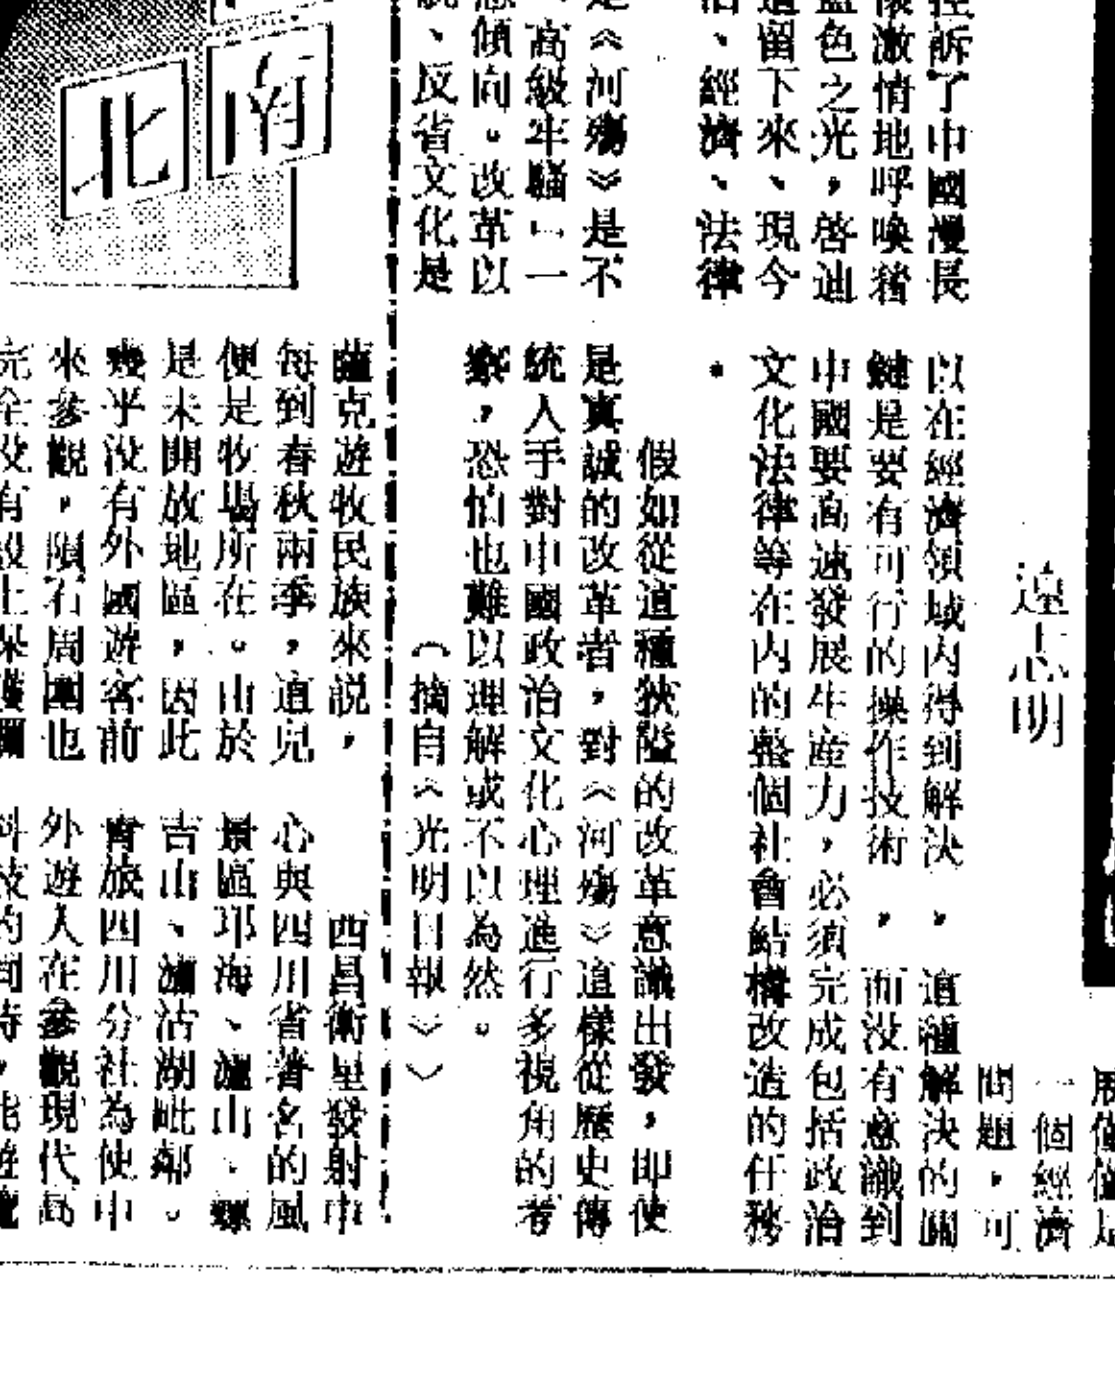 遠志明
訴了中國漫長
激情地呼喚着
色之光，啓迪
留下來、現今
、經濟、法律
《河殤》是不
高級牢騷」一
傾向。改革以
、反省文化是
一個經濟
問題，可
以在經濟領域内得到解決，這種解決的關
鍵是要有可行的操作技術，而没有意識到
中國要高速發展生産力，必須完成包括政治
文化法律等在内的整個社會結構改造的任務
。
假如從這種狹隘的改革意識出發，即使
是真誠的改革者，對《河殤》這樣從歷史傳
統入手對中國政治文化心理進行多視角的考
察，恐怕也難以理解或不以為然。
（摘自《光明日報》）
南
北
薩克遊牧民族來説，
每到春秋兩季，這兒
便是牧場所在。由於
是未開放地區，因此
幾乎没有外國遊客前
來參觀，隕石周圍也
完全没有設上保護欄
西昌衛星發射中
心與四川省著名的風
景區邛海、瀘山、螺
吉山、瀘沽湖毗鄰。
青旅四川分社為使中
外遊人在參觀現代高
科技的同時，能遊覽